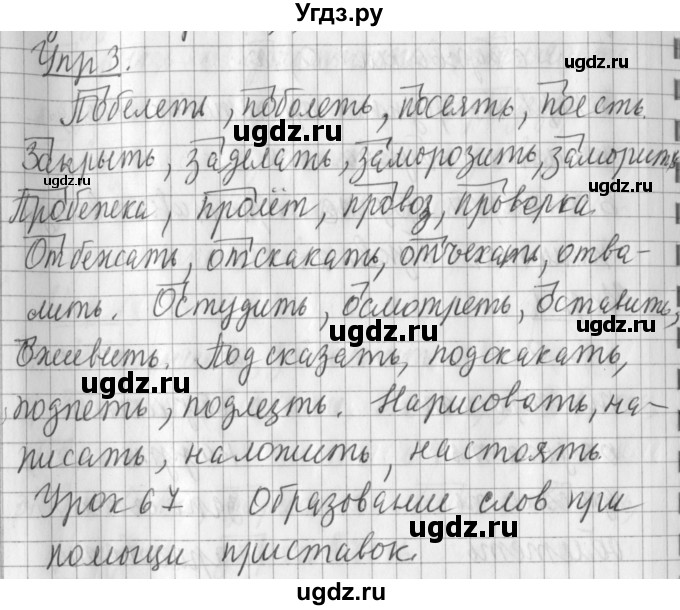 Угдз.ру
Упр 3.
Побелеть, поболеть, посеять, поесть.
Закрыть, заделать, заморозить, заморить.
Пробежка, пролёт, провоз, проверка.
Отбежать, отскакать, отъехать, отва-
лить. Остудить, осмотреть, оставить,
оживить. Подсказать, подскакать,
подпеть, подлезть. Нарисовать, на-
писать, наложить, настоять.
Урок 67 Образование слов при
помощи приставок.
ugdz.ru
ugdz.ru
ugdz.ru
ugdz.ru
ugdz.ru
ugdz.ru
ugdz.ru
ugdz.ru
ugdz.ru
ugdz.ru
ugdz.ru
ugdz.ru